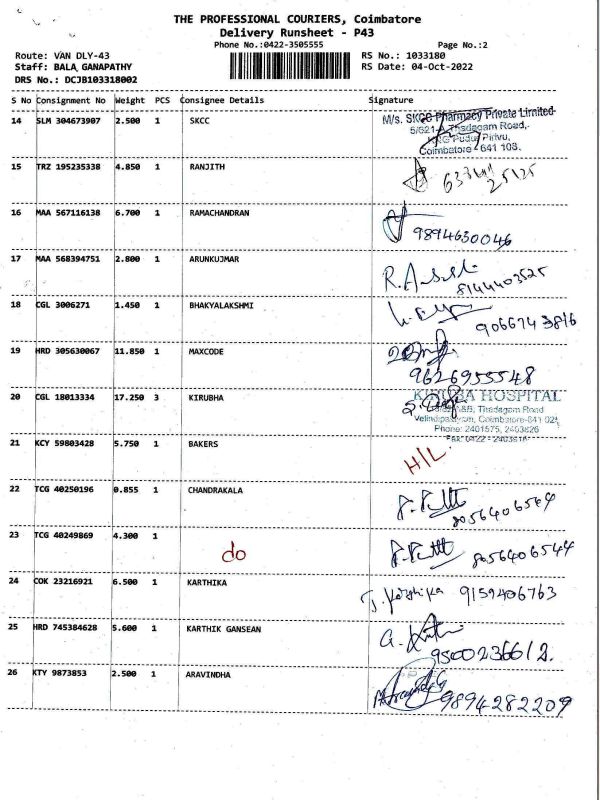 THE PROFESSIONAL COURIERS, Coimbatore
Delivery Runsheet - P43
Phone No.:0422-3505555 Page No.:2
Route: VAN DLY-43 RS No.: 1033180
Staff: BALA, GANAPATHY RS Date: 04-Oct-2022
DRS No.: DCJB103318002
S No Consignment No Weight PCS Consignee Details Signature
14 SLM 304673907 2.500 1 SKCC M/s. SKCC Pharmacy Private Limited
5/621-A Thadagam Road,
KNG Pudur Pirivu,
Coimbatore - 641 108.
15 TRZ 195235338 4.850 1 RANJITH
25125
16 MAA 567116138 6.700 1 RAMACHANDRAN
9894630046
17 MAA 568394751 2.800 1 ARUNKUJMAR
8144403525
18 CGL 3006271 1.450 1 BHAKYALAKSHMI
9066743816
19 HRD 305630067 11.850 1 MAXCODE
9626955548
20 CGL 18013334 17.250 3 KIRUBHA KIRUBA HOSPITAL
Thadagam Road
Coimbatore-641 025
Phone: 2401575, 2403826
21 KCY 59803428 5.750 1 BAKERS H/L
22 TCG 40250196 0.855 1 CHANDRAKALA
8056406544
23 TCG 40249869 4.300 1 do 8056406544
24 COK 23216921 6.500 1 KARTHIKA 9159406763
25 HRD 745384628 5.600 1 KARTHIK GANSEAN
9500236612.
26 KTY 9873853 2.500 1 ARAVINDHA
9894282209